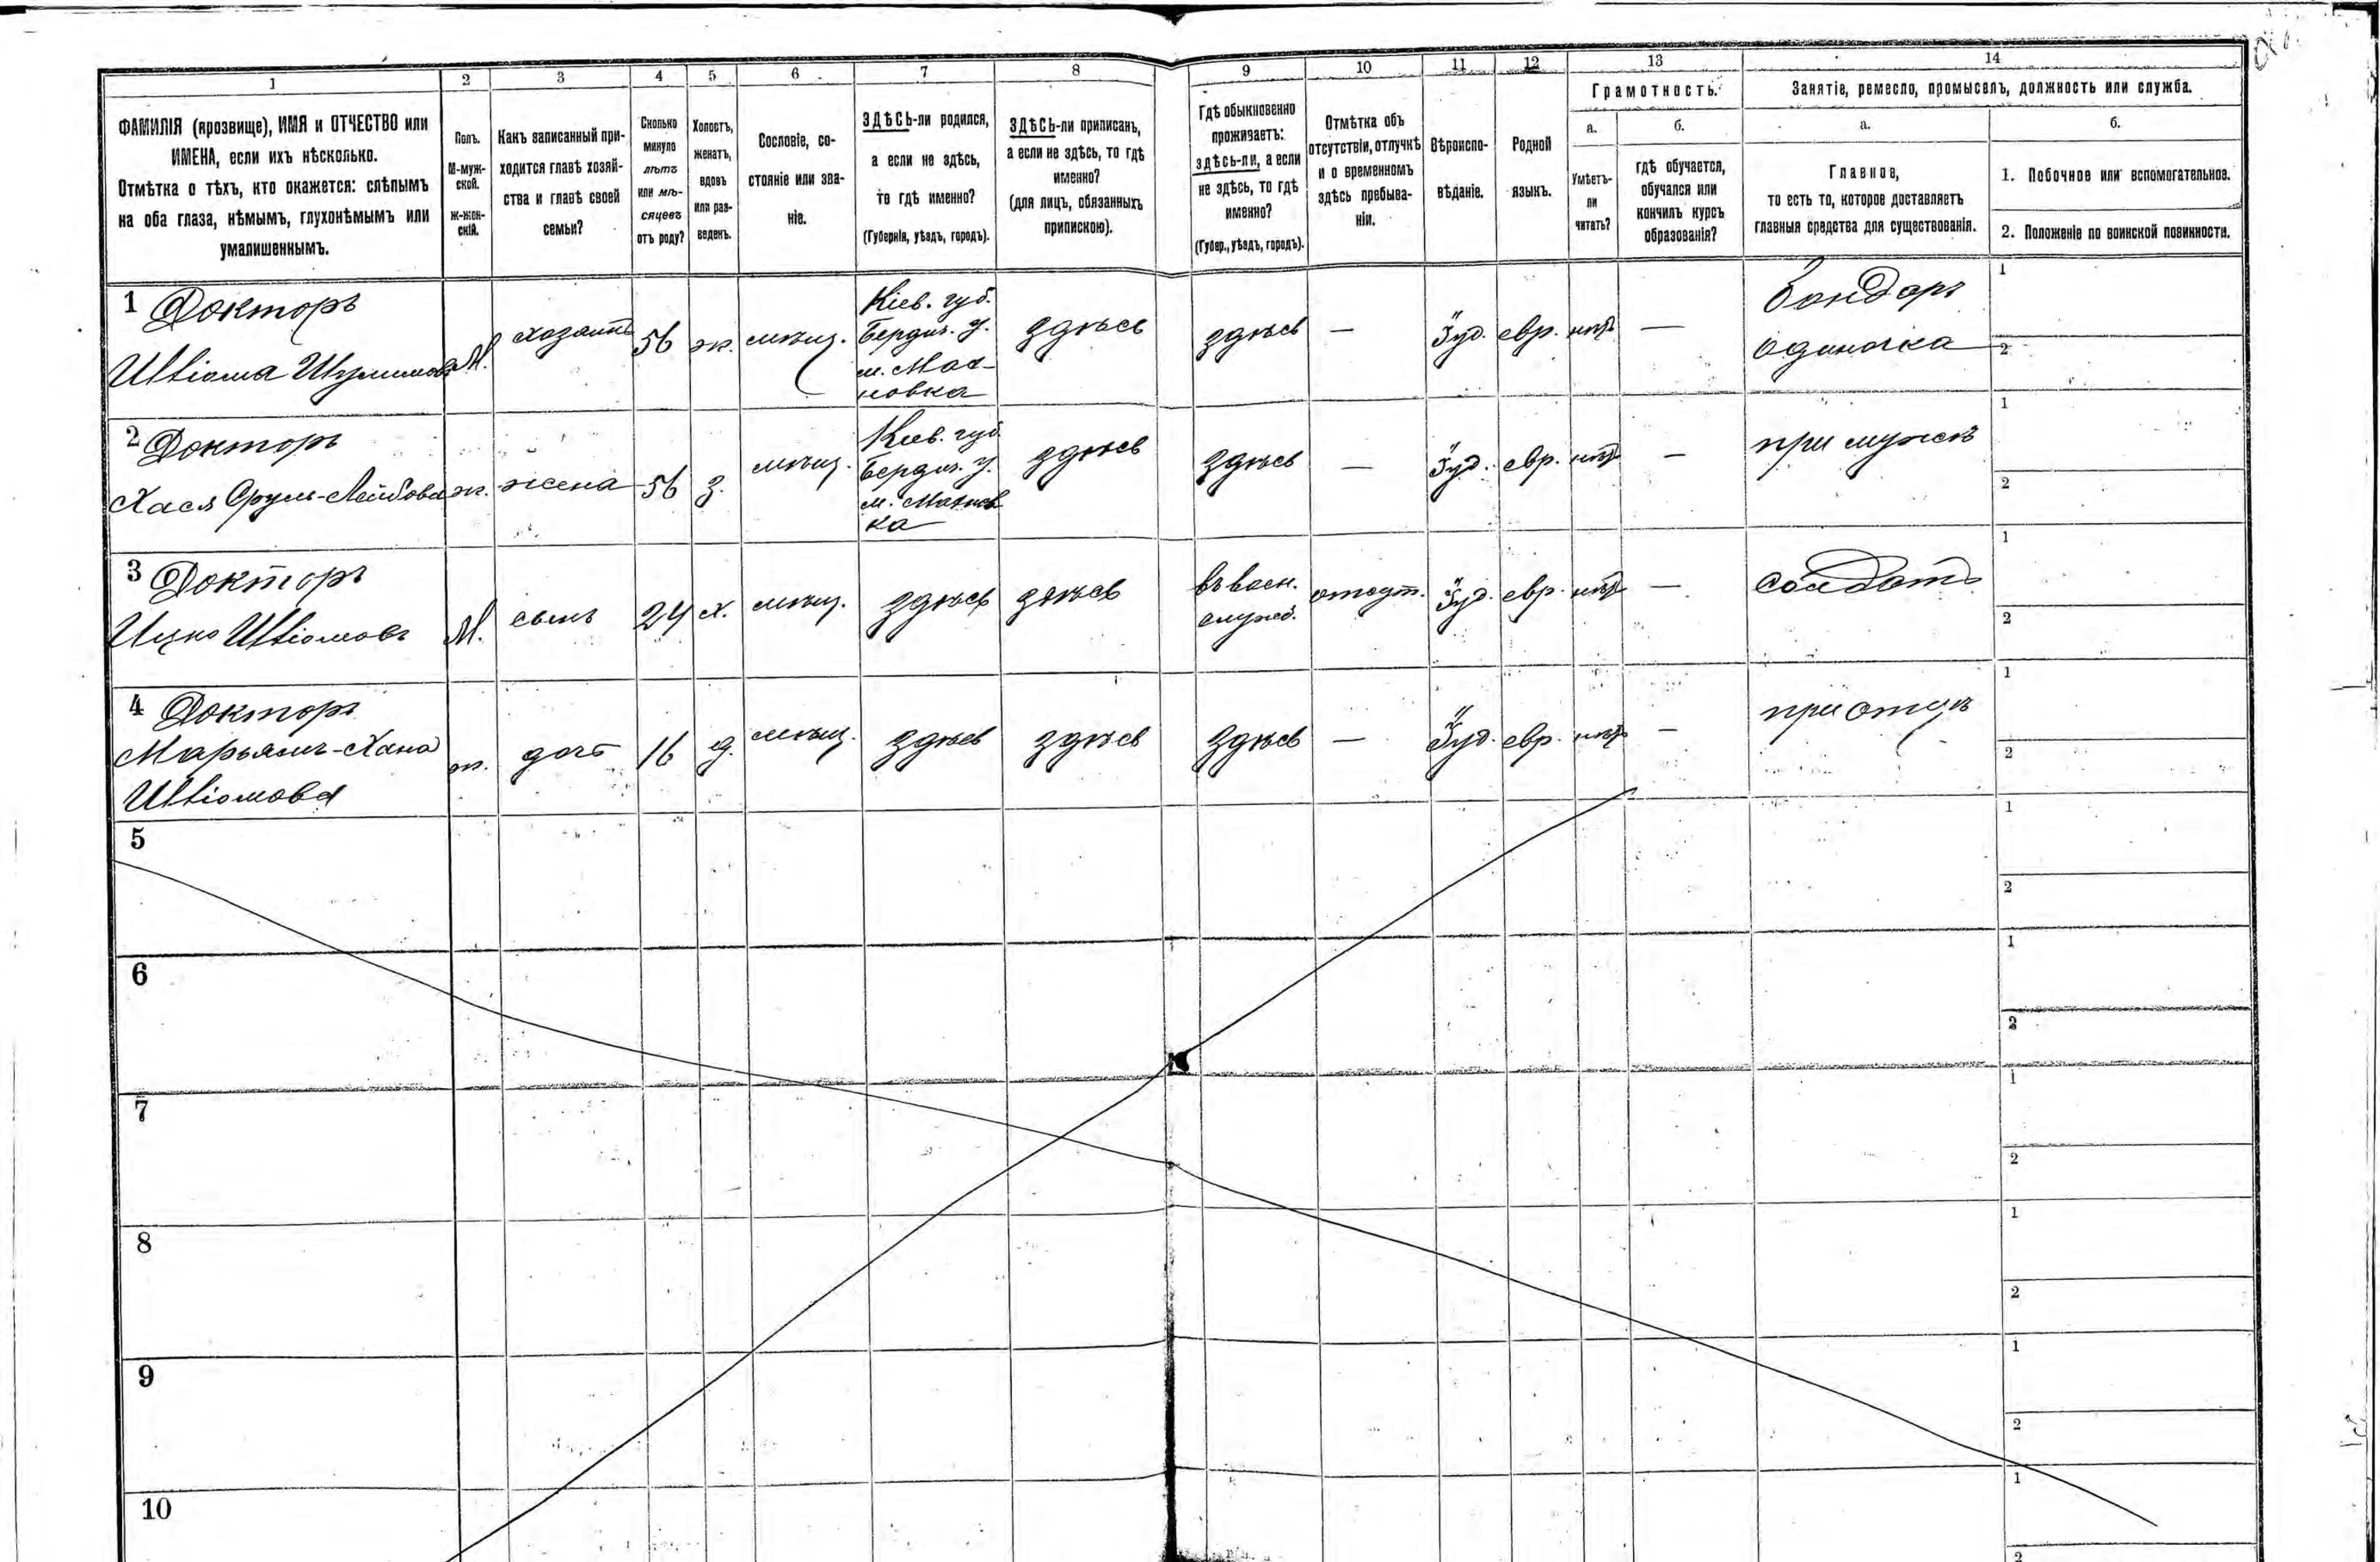 1 2 3 4 5 6 7 8 9 10 11 12 13 14
ФАМИЛІЯ (прозвище), ИМЯ и ОТЧЕСТВО или
ИМЕНА, если ихъ нѣсколько.
Отмѣтка о тѣхъ, кто окажется: слѣпымъ
на оба глаза, нѣмымъ, глухонѣмымъ или
умалишеннымъ.
Полъ.
М-муж-
ской.
Ж-жен-
скій.
Какъ записанный при-
ходится главѣ хозяй-
ства и главѣ своей
семьи?
Сколько
минуло
лѣтъ
или мѣ-
сяцевъ
отъ роду?
Холостъ,
женатъ,
вдовъ
или раз-
веденъ.
Сословіе, со-
стояніе или зва-
ніе.
ЗДѢСЬ-ли родился,
а если не здѣсь,
то гдѣ именно?
(Губернія, уѣздъ, городъ).
ЗДѢСЬ-ли приписанъ,
а если не здѣсь, то гдѣ
именно?
(для лицъ, обязанныхъ
припискою).
Гдѣ обыкновенно
проживаетъ:
здѣсь-ли, а если
не здѣсь, то гдѣ
именно?
(Губер., уѣздъ, городъ).
Отмѣтка объ
отсутствіи, отлучкѣ
и о временномъ
здѣсь пребыва-
ніи.
Вѣроиспо-
вѣданіе.
Родной
языкъ.
Грамотность.
а.
Умѣетъ-
ли
читать?
б.
гдѣ обучается,
обучался или
кончилъ курсъ
образованія?
Занятіе, ремесло, промыселъ, должность или служба.
а.
Главное,
то есть то, которое доставляетъ
главныя средства для существованія.
б.
1. Побочное или вспомогательное.
2. Положеніе по воинской повинности.
1 Докторъ
Шліома Шулимовъ
М.
хозяинъ
56
ж.
мѣщ.
Кіев. губ.
Бердич. у.
м. Мах-
новка
здѣсь
здѣсь
—
Іуд.
евр.
нѣтъ
—
Бондарь
одиночка
1
2
2 Докторъ
Хася Сруль-Лейбова
ж.
жена
56
з.
мѣщ.
Кіев. губ.
Бердич. у.
м. Махнов
ка
здѣсь
здѣсь
—
Іуд.
евр.
нѣтъ
—
при мужѣ
1
2
3 Докторъ
Ицко Шліомовъ
М.
сынъ
24
х.
мѣщ.
здѣсь
здѣсь
въ воен.
служб.
отсут.
Іуд.
евр.
нѣтъ
—
солдатъ
1
2
4 Докторъ
Марьямъ-Хана
Шліомова
ж.
дочь
16
д.
мѣщ.
здѣсь
здѣсь
здѣсь
—
Іуд.
евр.
нѣтъ
—
при отцѣ
1
2
5
1
2
6
1
2
7
1
2
8
1
2
9
1
2
10
1
2